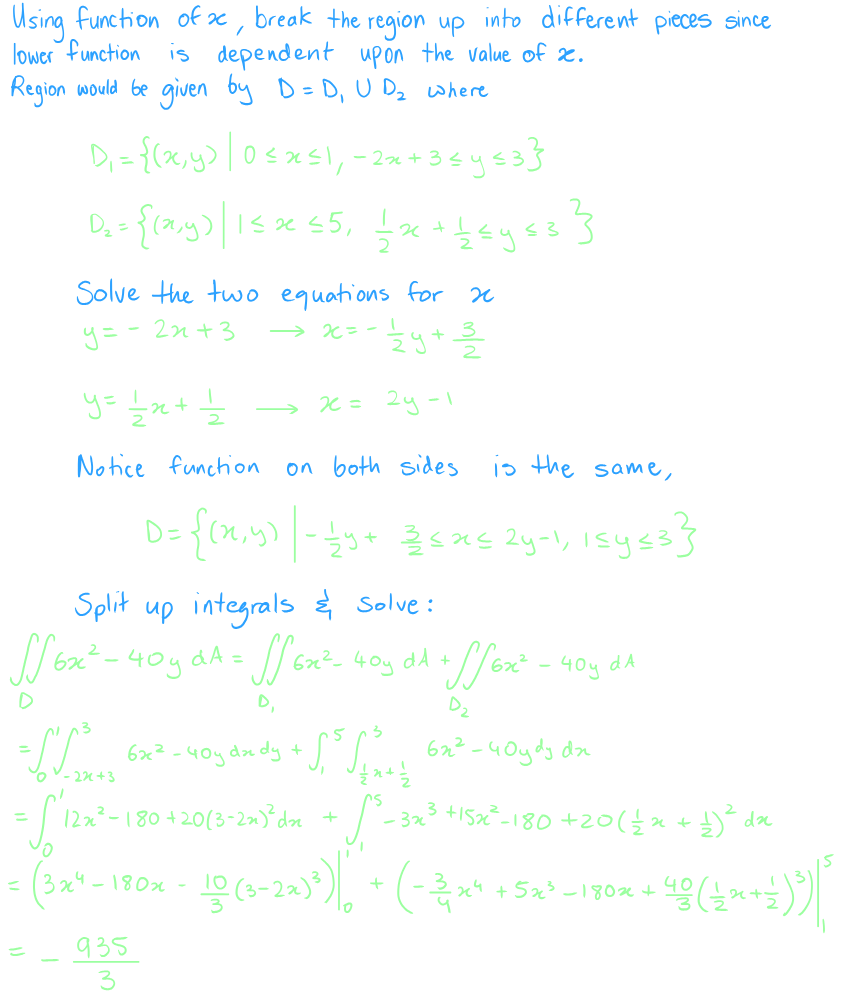 Using function of x, break the region up into different pieces since
lower function is dependent upon the value of x.
Region would be given by D = D₁ ∪ D₂ where
D₁ = {(x,y) | 0 ≤ x ≤ 1, -2x + 3 ≤ y ≤ 3}
D₂ = {(x,y) | 1 ≤ x ≤ 5, 1/2 x + 1/2 ≤ y ≤ 3}
Solve the two equations for x
y = - 2x + 3 → x = - 1/2 y + 3/2
y = 1/2 x + 1/2 → x = 2y - 1
Notice function on both sides is the same,
D = {(x,y) | - 1/2 y + 3/2 ≤ x ≤ 2y-1, 1 ≤ y ≤ 3}
Split up integrals & solve:
∬_D 6x² - 40y dA = ∬_D₁ 6x² - 40y dA + ∬_D₂ 6x² - 40y dA
= ∫∫₀¹ ∫_{-2x+3}^3 6x² - 40y dx dy + ∫₁⁵ ∫_{1/2 x + 1/2}^3 6x² - 40y dy dx
= ∫₀¹ 12x² - 180 + 20(3-2x)² dx + ∫₁⁵ - 3x³ + 15x² - 180 + 20(1/2 x + 1/2)² dx
= (3x⁴ - 180x - 10/3 (3-2x)³)|₀¹ + (- 3/4 x⁴ + 5x³ - 180x + 40/3 (1/2 x + 1/2)³)|₁⁵
= - 935/3